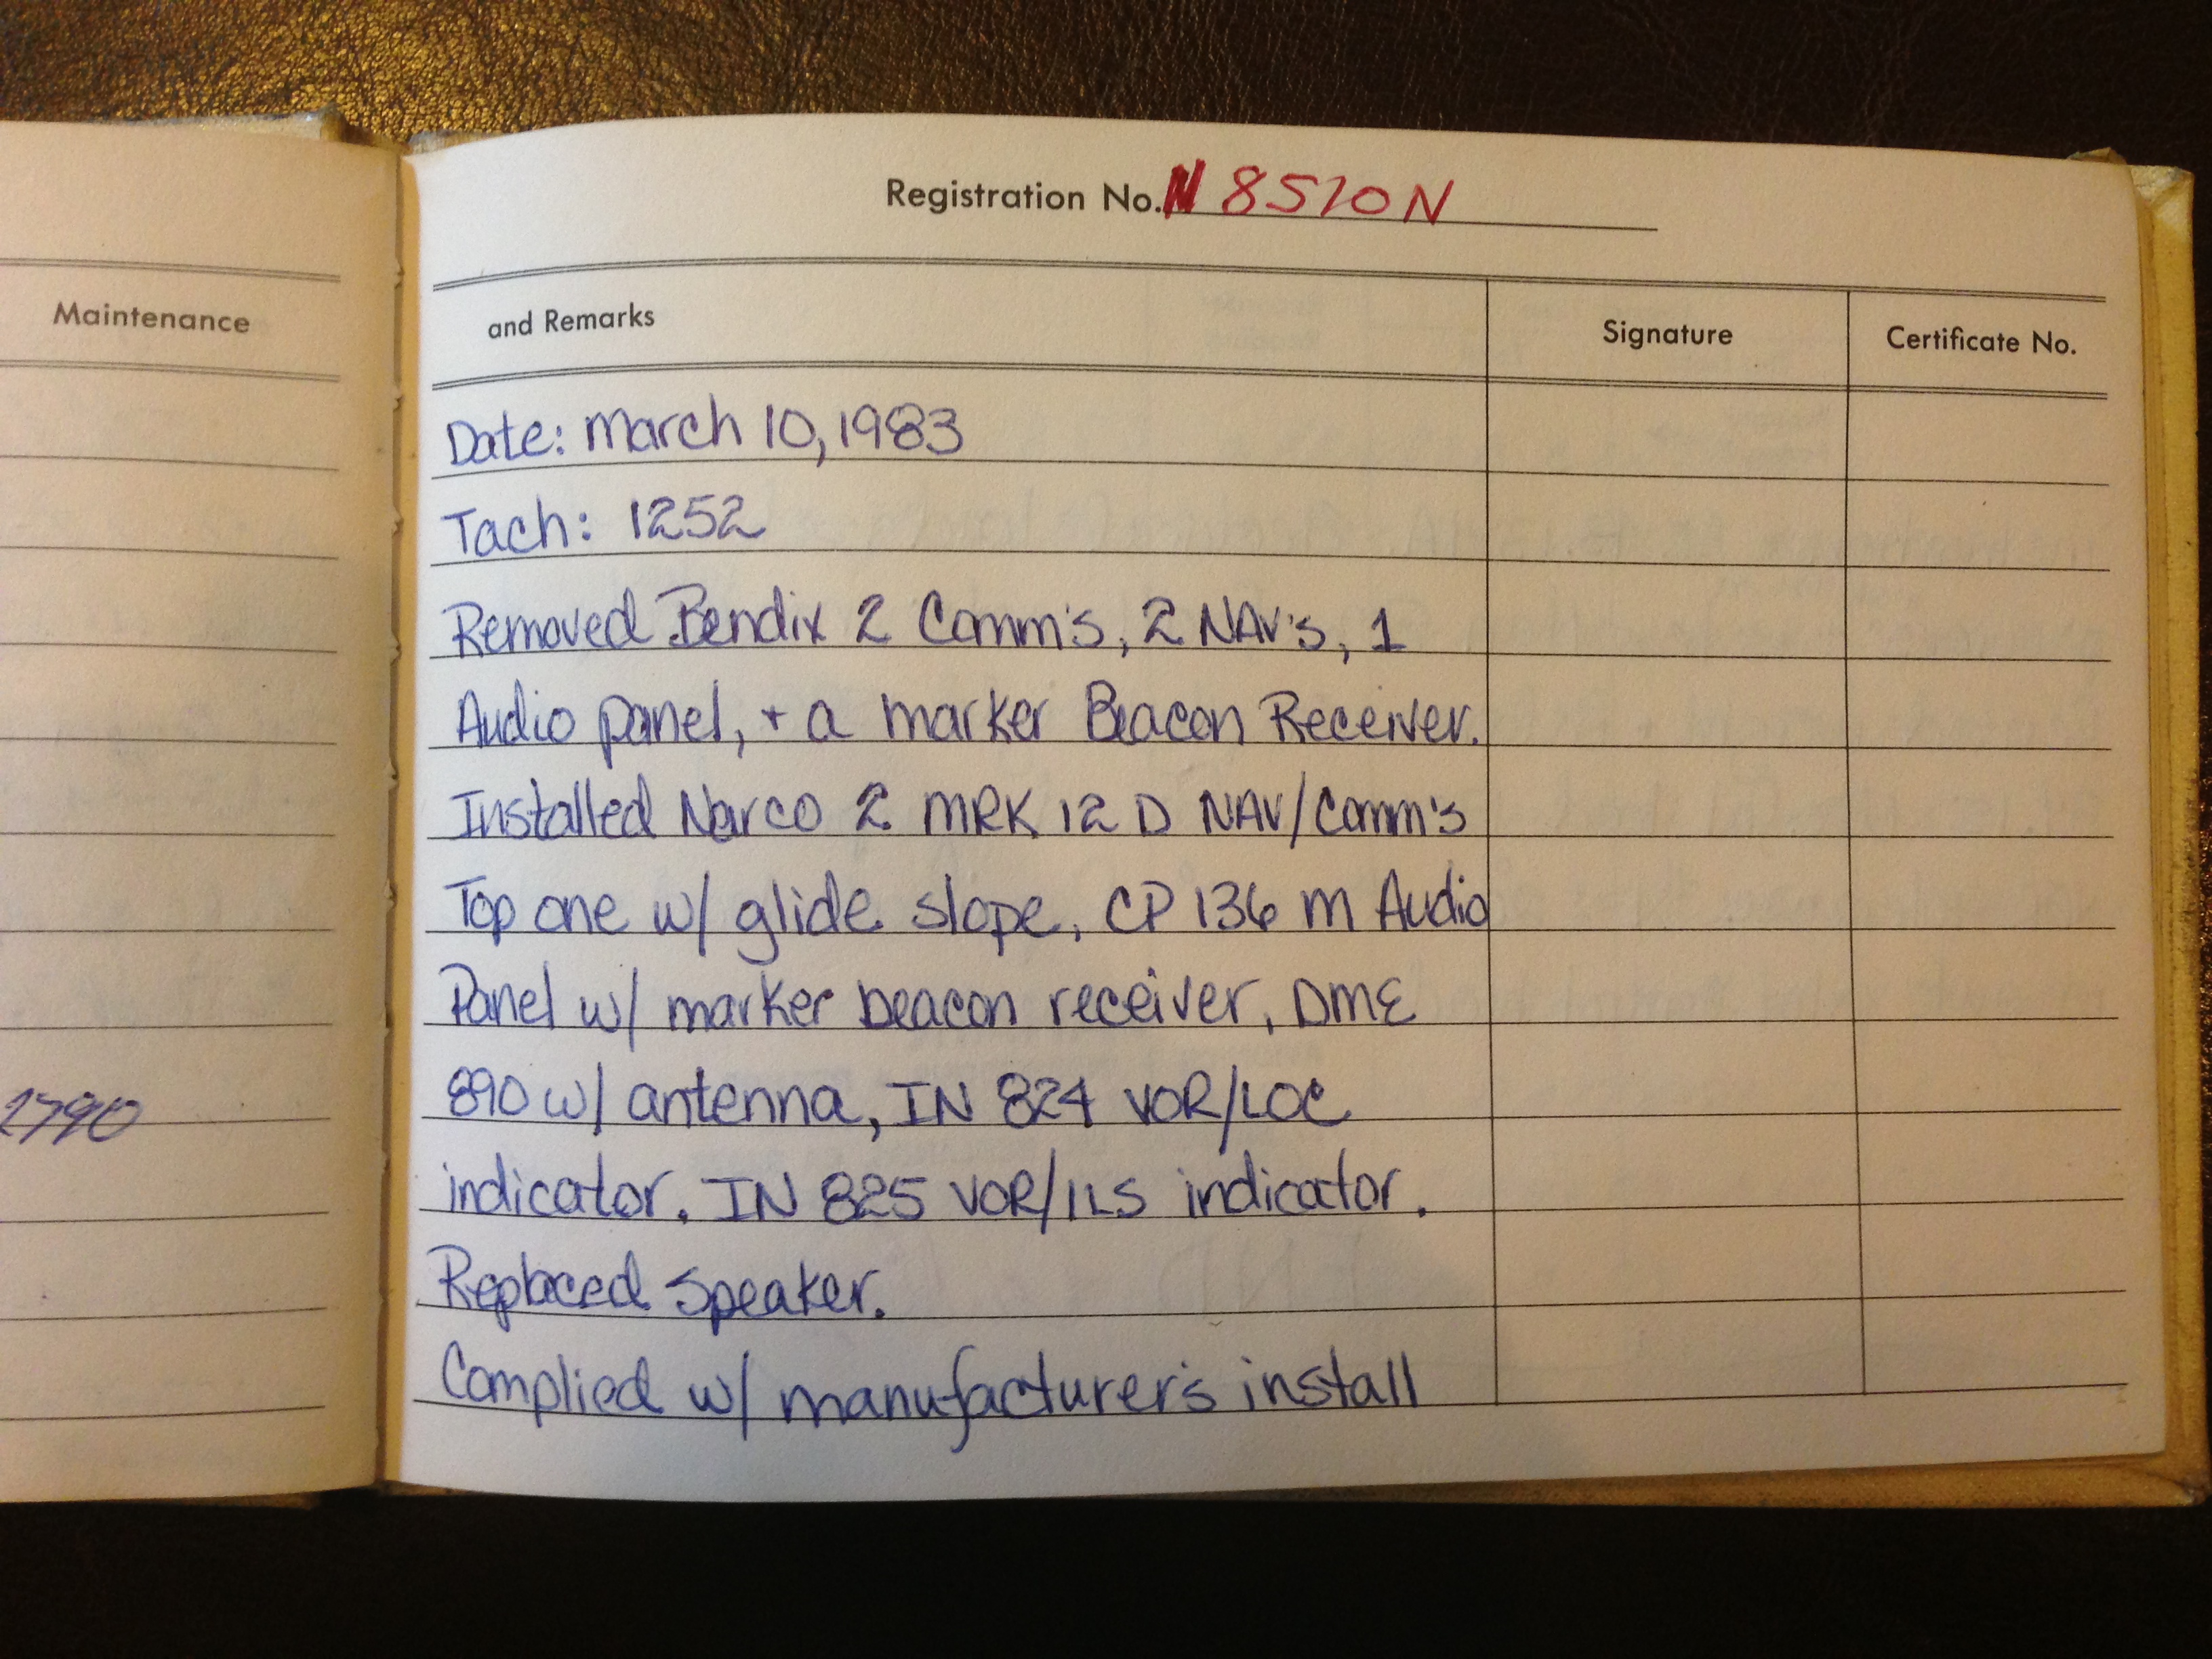 Maintenance
2790
Registration No. N8510N
and Remarks
Signature
Certificate No.
Date: March 10, 1983
Tach: 1252
Removed Bendix 2 Comm's, 2 NAV's, 1
Audio panel, + a marker Beacon Receiver.
Installed Narco 2 MRK 12 D NAV/Comm's
Top one w/ glide slope, CP 136 M Audio
Panel w/ marker beacon receiver, DME
890 w/ antenna, IN 824 VOR/LOC
indicator. IN 825 VOR/ILS indicator.
Replaced speaker.
Complied w/ manufacturer's install